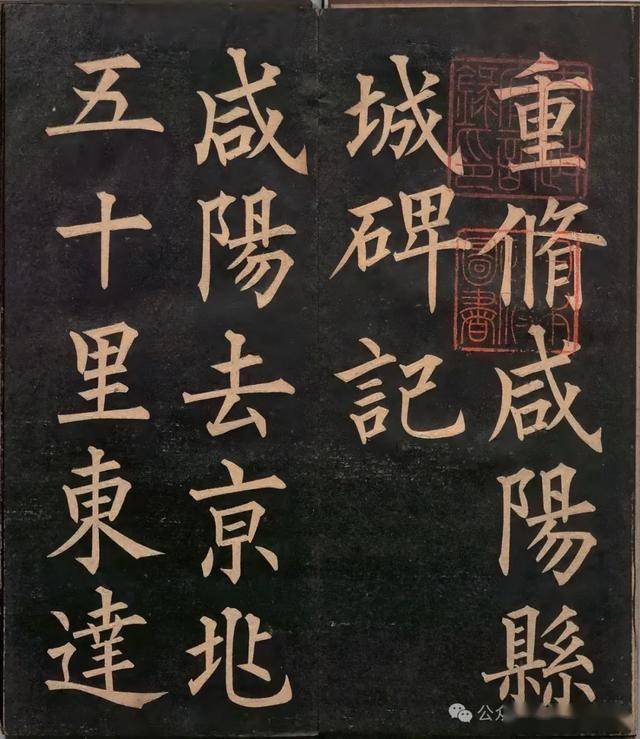 重脩咸陽縣
城碑記
咸陽去亰兆
五十里東達
公众